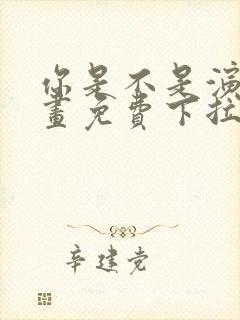 你是不是演
畫免費下拉
辛建党